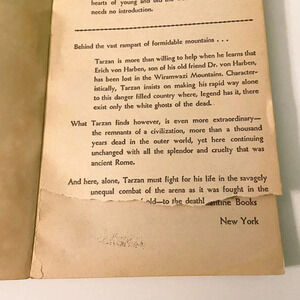 hearts of young and old the
needs no introduction.
Behind the vast rampart of formidable mountains . . .
Tarzan is more than willing to help when he learns that
Erich von Harben, son of his old friend Dr. von Harben,
has been lost in the Wiramwazi Mountains. Character-
istically, Tarzan insists on making his rapid way alone
to this danger filled country where, legend has it, there
exist only the white ghosts of the dead.
What Tarzan finds however, is even more extraordinary—
the remnants of a civilization, more than a thousand
years dead in the outer world, yet here continuing
unchanged with all the splendor and cruelty that was
ancient Rome.
And here, alone, Tarzan must fight for his life in the savagely
unequal combat of the arena as it was fought in the
old—to the death!
ntine Books
New York